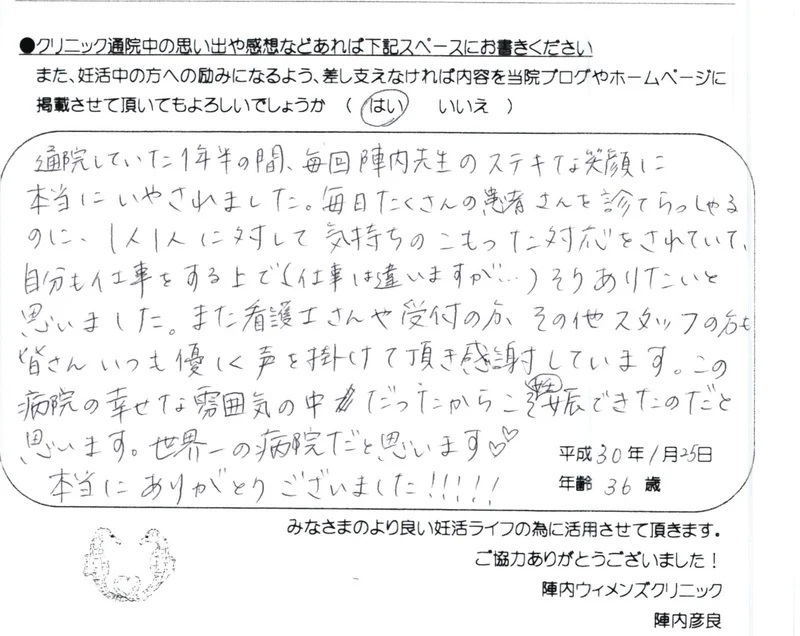 ●クリニック通院中の思い出や感想などあれば下記スペースにお書きください
また、妊活中の方への励みになるよう、差し支えなければ内容を当院ブログやホームページに
掲載させて頂いてもよろしいでしょうか ( はい いいえ )
通院していた1年半の間、毎回陣内先生のステキな笑顔に
本当にいやされました。毎日たくさんの患者さんを診てらっしゃる
のに、1人1人に対して気持ちのこもった対応をされていて、
自分も仕事をする上で(仕事は違いますが…)そうありたいと
思いました。また看護士さんや受付の方、その他スタッフの方も
皆さんいつも優しく声を掛けて頂き感謝しています。この
病院の幸せな雰囲気の中だったからこそ妊娠できたのだと
思います。世界一の病院だと思います♡♡
本当にありがとうございました!!!!!
平成30年1月25日
年齢 36 歳
みなさまのより良い妊活ライフの為に活用させて頂きます。
ご協力ありがとうございました!
陣内ウィメンズクリニック
陣内彦良